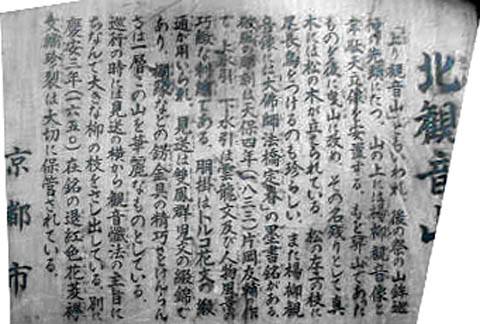 北観音山
「上り観音山」ともいわれ、後の祭の山鉾巡
行の先頭にたつ。山の上には楊柳観音像と
韋駄天立像を安置する。もと舁山であった
ものを後に曳山に改め、その名残りとして、真
木には松の木が立てられている。松の左二の枝に
尾長鳥をつけるのも珍らしい。また楊柳観
音像には大佛師法橋定春の墨書銘がある。
破風の彫刻は天保四年(一八三三)片岡友輔作
で、上水引、下水引は雲龍文及び人物風景の
巧緻な刺繍である。胴掛はトルコ花文の緞
通が用いられ、見送は雙鳳群児文の綴錦で
あり、欄縁などの錺金具の精巧なけんらん
さは一層この山を華麗なものとしている。
巡行の時には見送の横から観音懺法の主旨に
ちなんで大きな柳の枝をさし出している。別に
慶安三年(一六五〇)在銘の退紅色花菱襷
文綿珍裂は大切に保管されている。
京都市